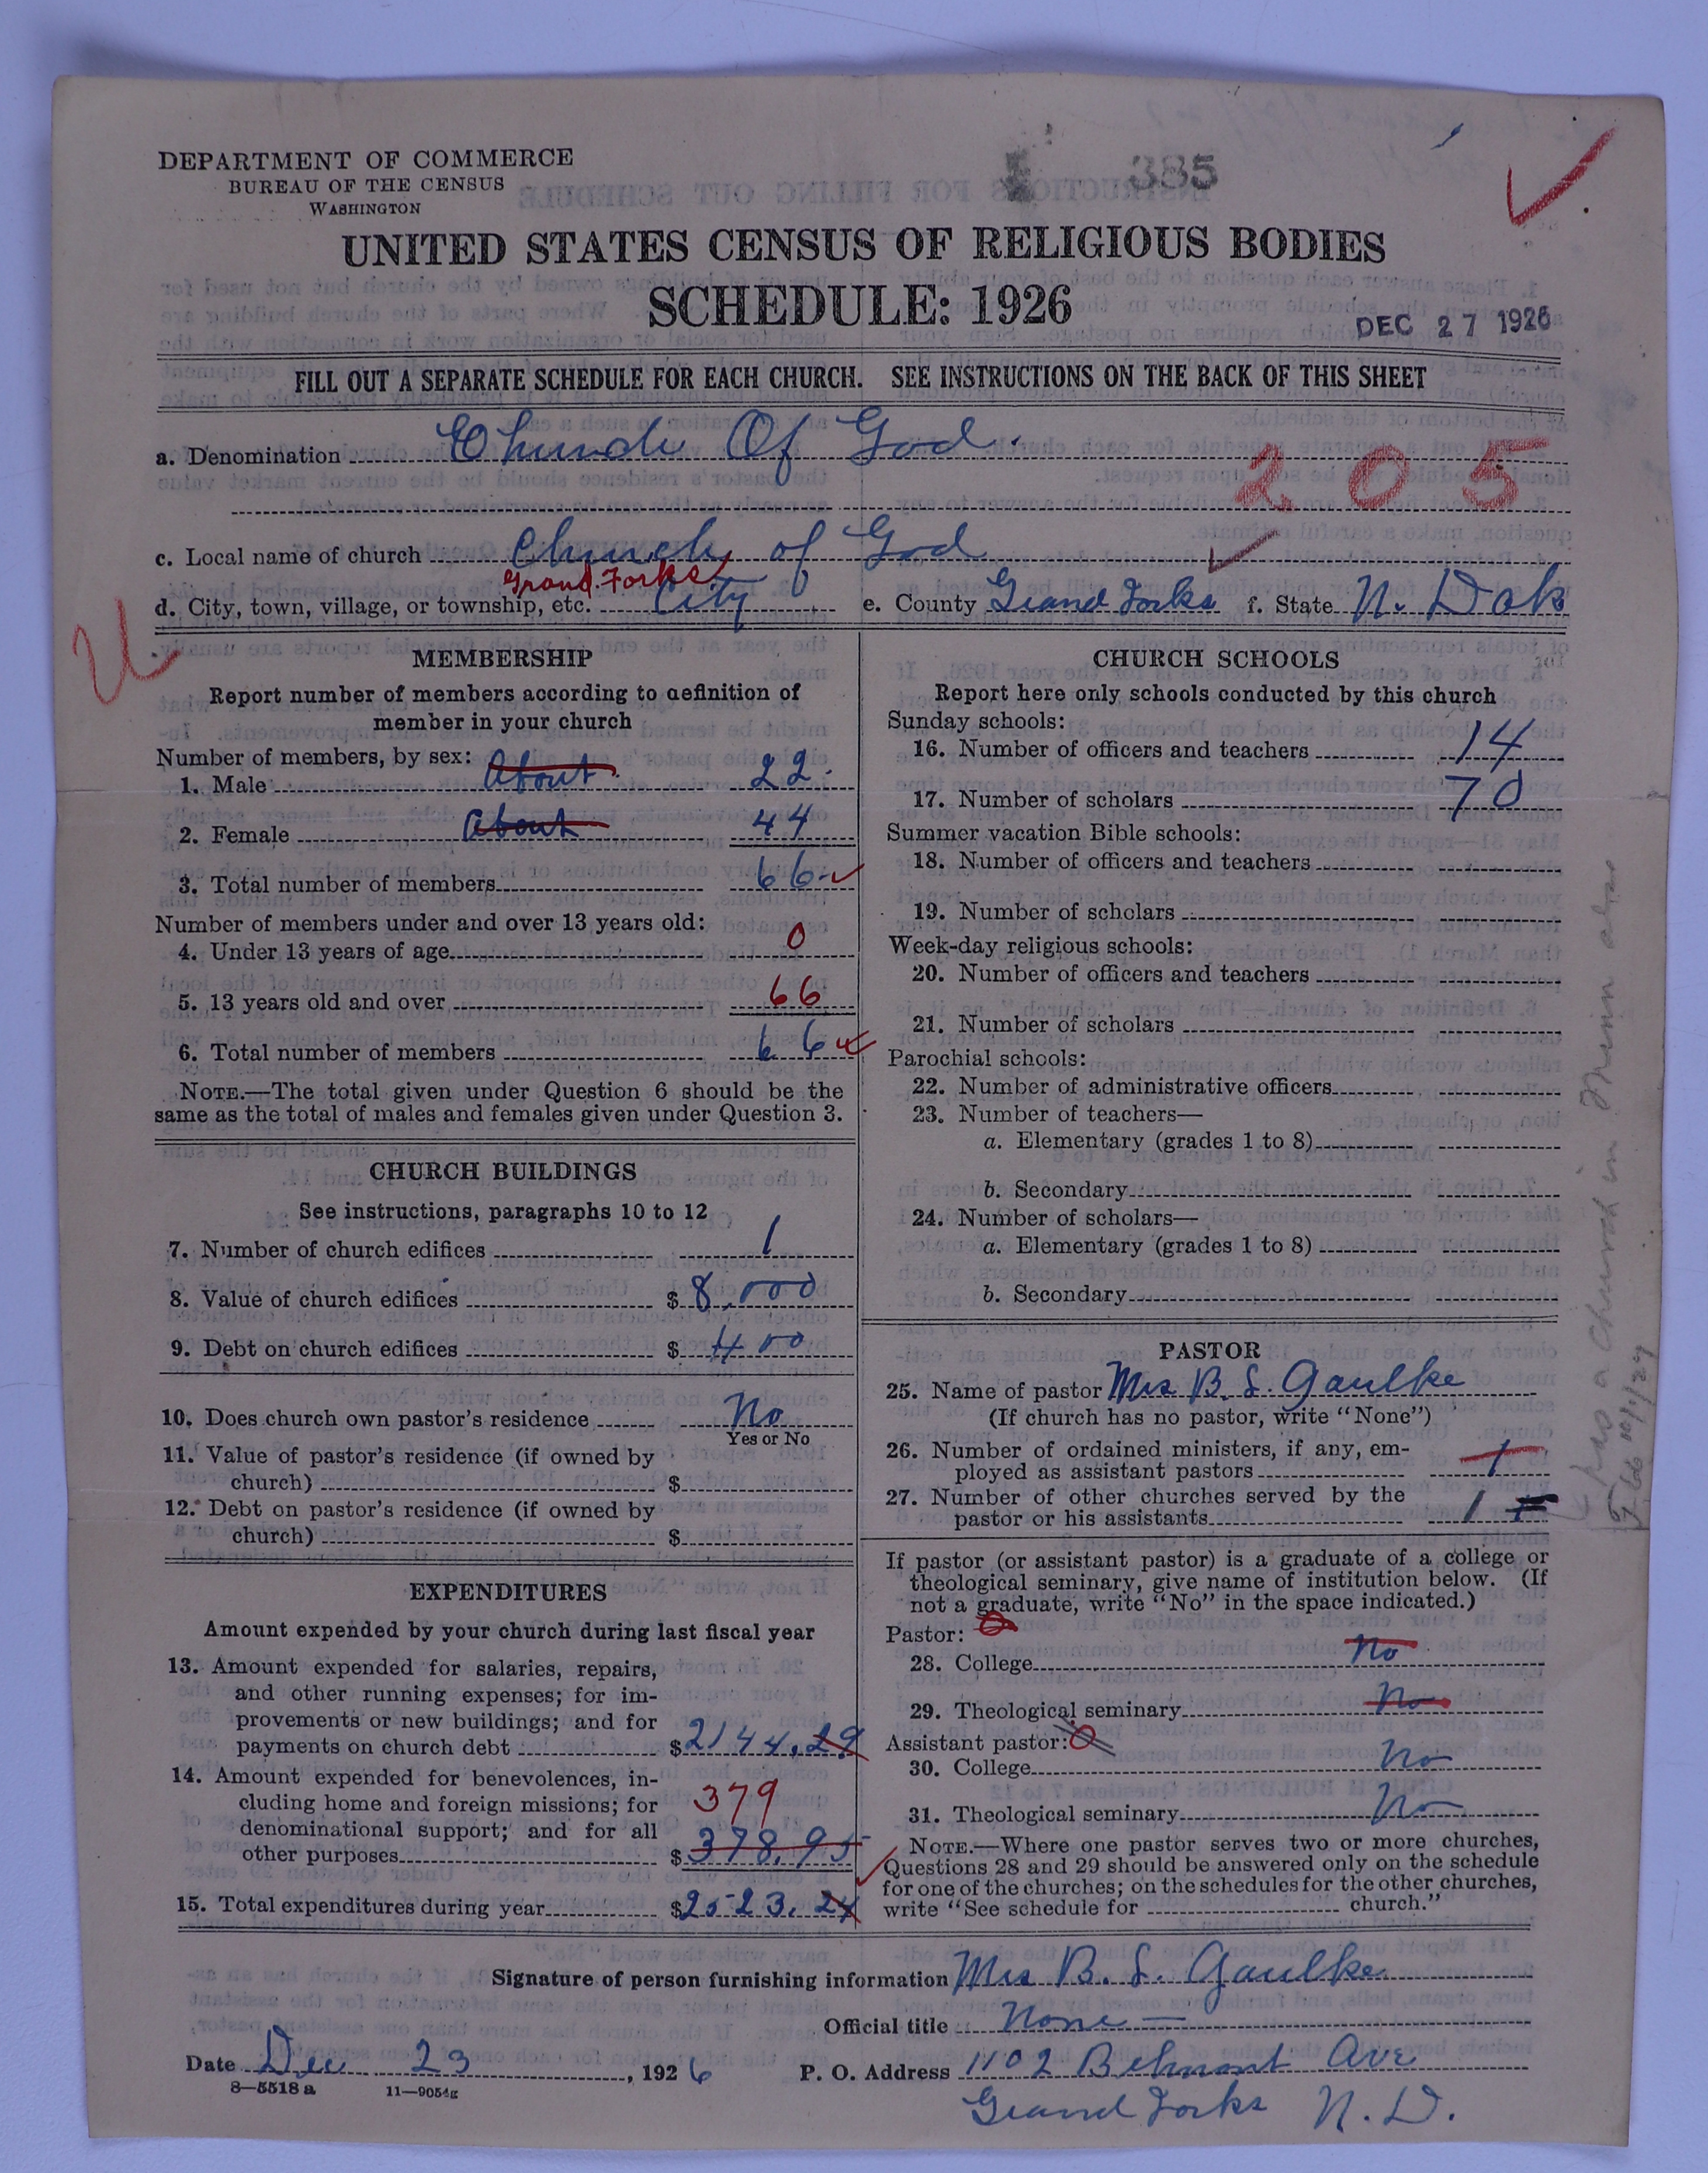 DEPARTMENT OF COMMERCE
BUREAU OF THE CENSUS
WASHINGTON
385
UNITED STATES CENSUS OF RELIGIOUS BODIES
SCHEDULE: 1926
DEC 27 1926
FILL OUT A SEPARATE SCHEDULE FOR EACH CHURCH. SEE INSTRUCTIONS ON THE BACK OF THIS SHEET
a. Denomination Church Of God.
205
c. Local name of church Church of God
Grand Forks
d. City, town, village, or township, etc. City e. County Grand Forks f. State N. Dak
U
MEMBERSHIP
Report number of members according to definition of
member in your church
Number of members, by sex:
1. Male About 22
2. Female About 44
3. Total number of members 66
Number of members under and over 13 years old:
4. Under 13 years of age 0
5. 13 years old and over 66
6. Total number of members 66
NOTE.—The total given under Question 6 should be the
same as the total of males and females given under Question 3.
CHURCH BUILDINGS
See instructions, paragraphs 10 to 12
7. Number of church edifices 1
8. Value of church edifices $ 8,000
9. Debt on church edifices $ 400
10. Does church own pastor's residence No
Yes or No
11. Value of pastor's residence (if owned by
church) $
12. Debt on pastor's residence (if owned by
church) $
EXPENDITURES
Amount expended by your church during last fiscal year
13. Amount expended for salaries, repairs,
and other running expenses; for im-
provements or new buildings; and for
payments on church debt $ 2144.29
14. Amount expended for benevolences, in-
cluding home and foreign missions; for 379
denominational support; and for all
other purposes $ 378.95
15. Total expenditures during year $ 2523.24
CHURCH SCHOOLS
Report here only schools conducted by this church
Sunday schools:
16. Number of officers and teachers 14
17. Number of scholars 70
Summer vacation Bible schools:
18. Number of officers and teachers
19. Number of scholars
Week-day religious schools:
20. Number of officers and teachers
21. Number of scholars
Parochial schools:
22. Number of administrative officers
23. Number of teachers—
a. Elementary (grades 1 to 8)
b. Secondary
24. Number of scholars—
a. Elementary (grades 1 to 8)
b. Secondary
PASTOR
25. Name of pastor Mrs B. L. Gaulke
(If church has no pastor, write "None")
26. Number of ordained ministers, if any, em-
ployed as assistant pastors 1
27. Number of other churches served by the
pastor or his assistants 1
If pastor (or assistant pastor) is a graduate of a college or
theological seminary, give name of institution below. (If
not a graduate, write "No" in the space indicated.)
Pastor:
28. College No
29. Theological seminary No
Assistant pastor:
30. College No
31. Theological seminary No
NOTE.—Where one pastor serves two or more churches,
Questions 28 and 29 should be answered only on the schedule
for one of the churches; on the schedules for the other churches,
write "See schedule for church."
has a church in Minn also
Signature of person furnishing information Mrs B. L. Gaulke
Official title None —
Date Dec 23, 1926 P. O. Address 1102 Belmont Ave
8—5518a 11—9054g
Grand Forks N. D.